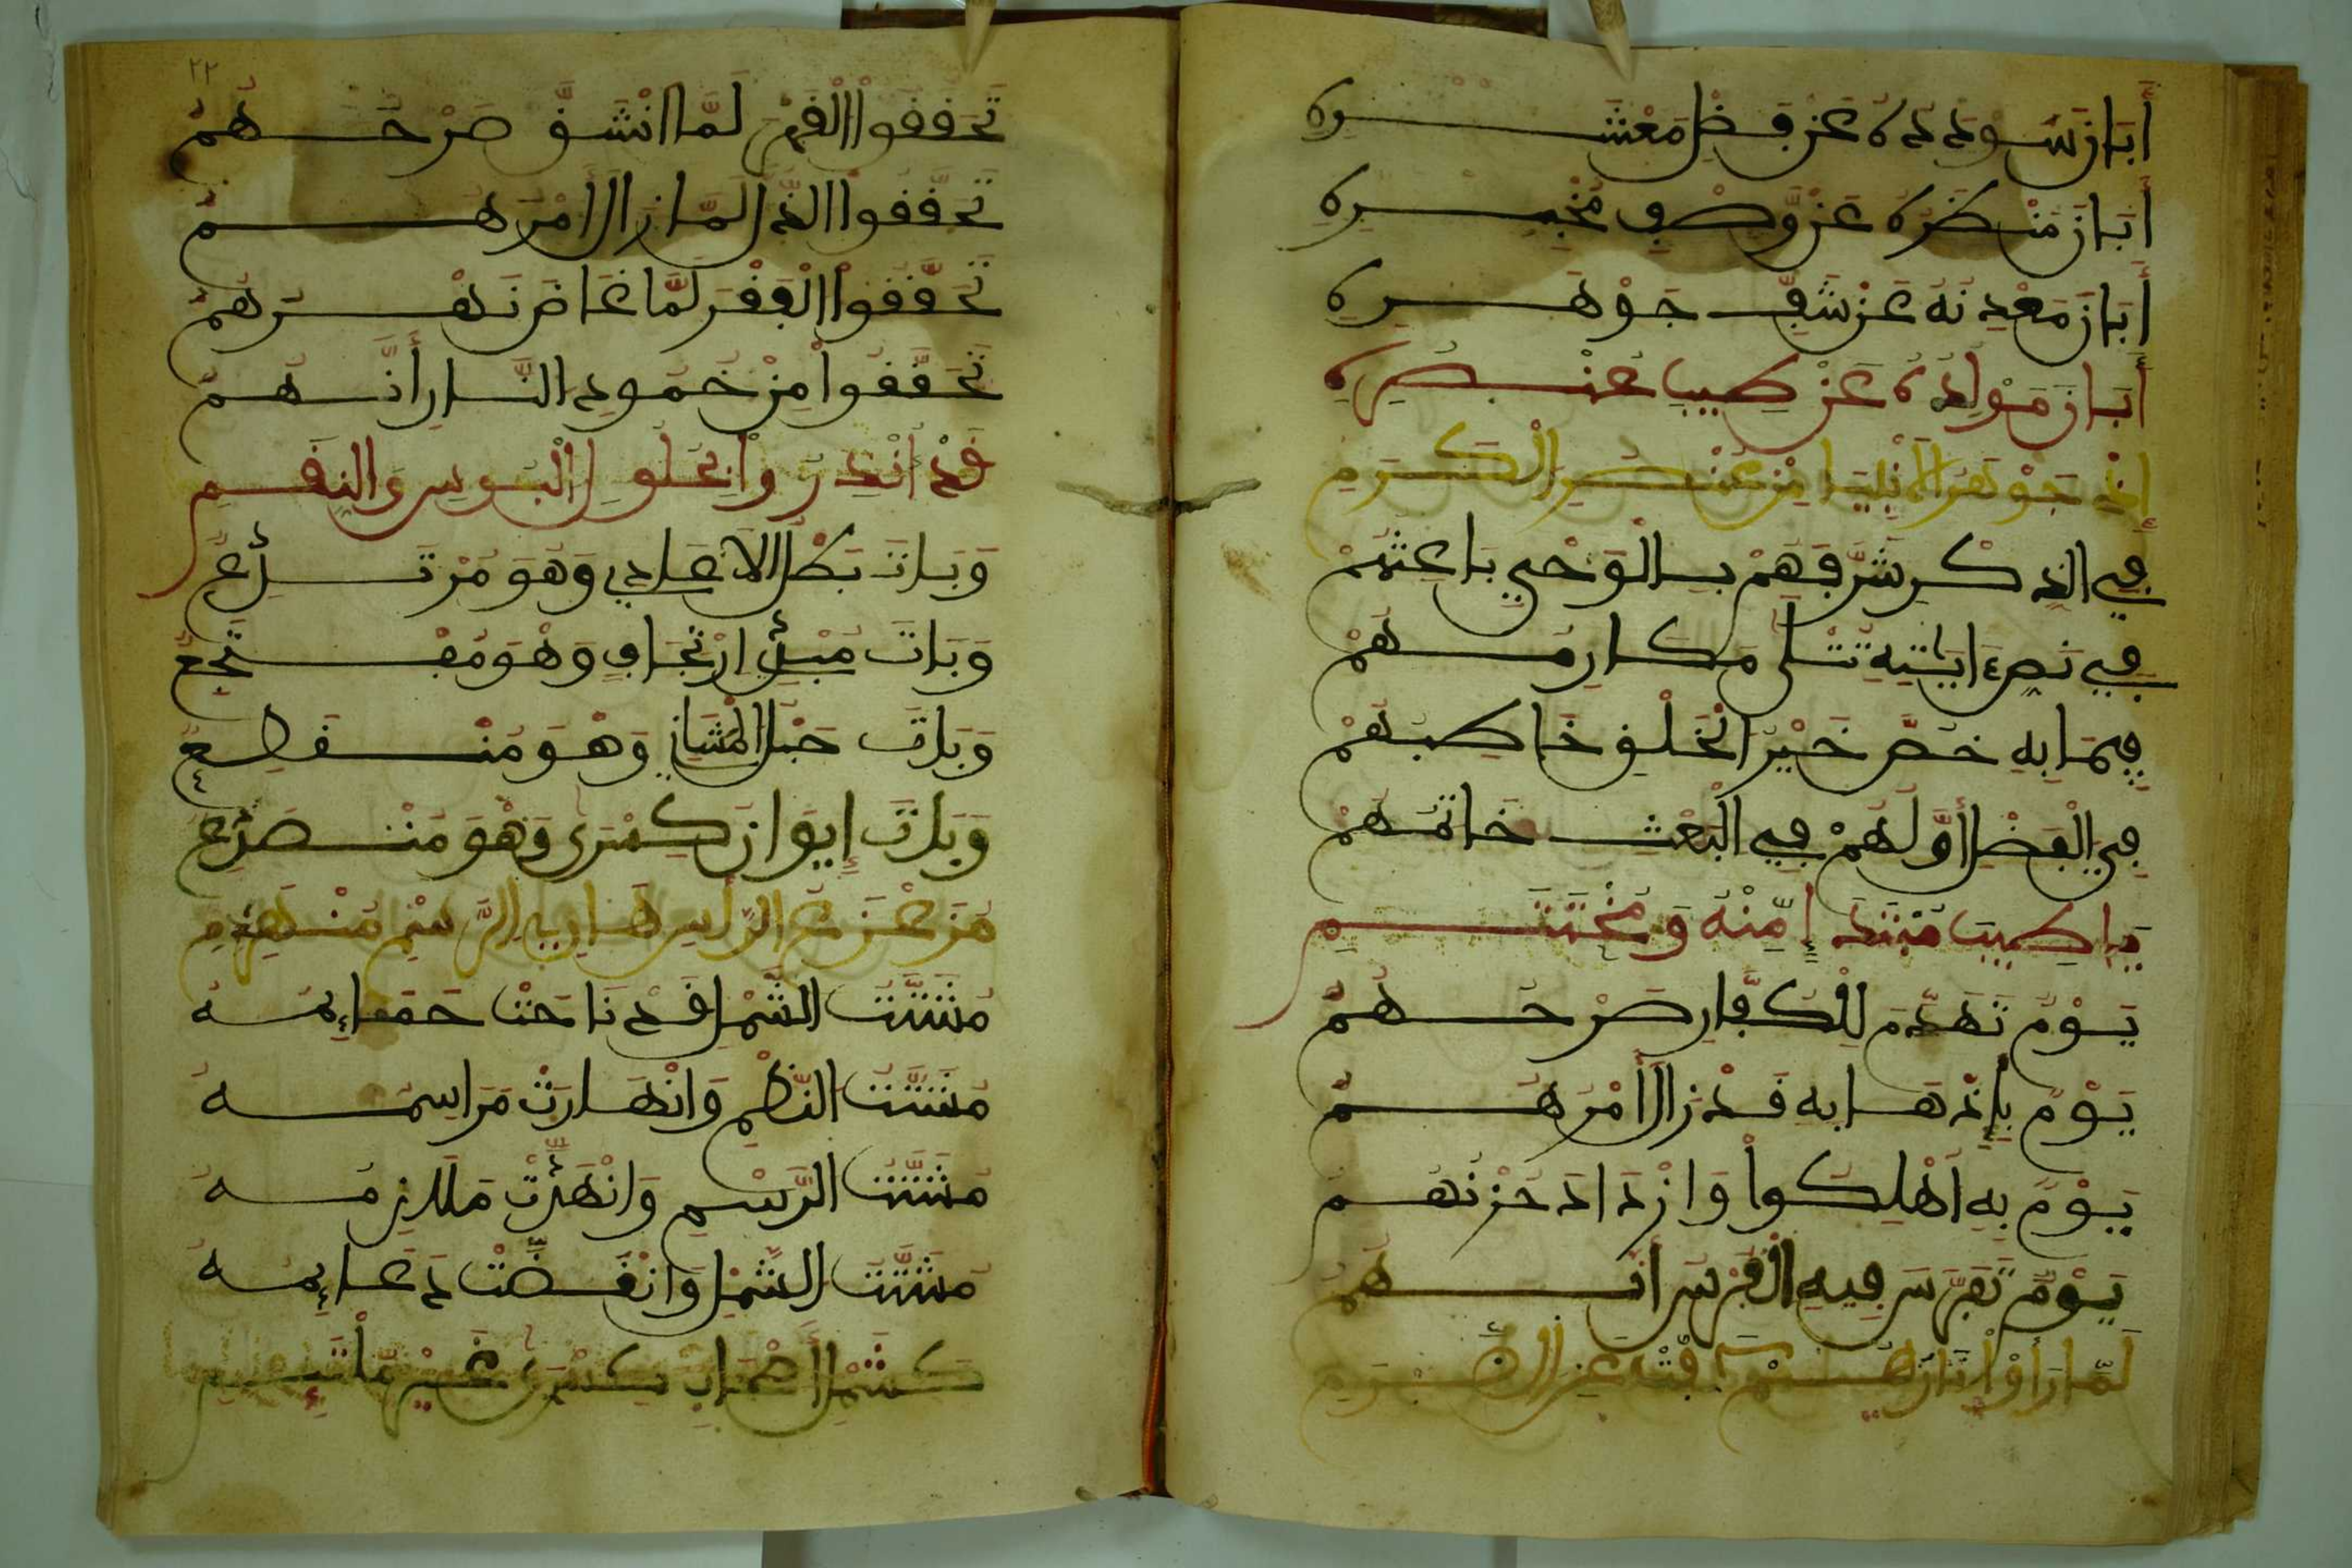 أَبَانَ سُودَدُهُ عَنْ فَضْلِ مَعْشَرِهِ
أَبَانَ مَنْظَرُهُ عَنْ وَصْفِ مَخْبَرِهِ
أَبَانَ مَعْدِنُهُ عَنْ شَفِّ جَوْهَرِهِ
أَبَانَ مَوْلِدُهُ عَنْ طِيبِ عُنْصُرِهِ
إِذْ جَوْهَرُ الْأَنْبِيَا مِنْ عُنْصُرِ الْكَرَمِ
فِي الذِّكْرِ شَرَّفَهُمْ بِالْوَحْيِ بَاعِثُهُمْ
فِي نَصِّ ءَايَاتِهِ تُتْلَى مَكَارِمُهُمْ
فِيمَا بِهِ خَصَّ خَيْرَ الْخَلْقِ خَاطَبَهُمْ
فِي الْفَضْلِ أَوَّلُهُمْ فِي الْبَعْثِ خَاتَمُهُمْ
يَا طِيبَ مُبْتَدَإٍ مِنْهُ وَمُخْتَتَمِ
يَوْمٌ تَهَدَّمَ لِلْكُفَّارِ صَرْحُهُمُ
يَوْمٌ بِإِذْهَابِهِ قَدْ زَالَ أَمْرُهُمُ
يَوْمٌ بِهِ أُهْلِكُوا وَازْدَادَ حُزْنُهُمُ
يَوْمٌ تَفَرَّسَ فِيهِ الْفُرْسُ أَنَّهُمُ
لَمَّا رَأَوْا نَارَهُمْ
تَحَقَّقُوا لَمَّا انْشَقَّ صَرْحُهُمُ
تَحَقَّقُوا الذُّلَّ لَمَّا زَالَ أَمْرُهُمُ
تَحَقَّقُوا الْفَقْرَ لَمَّا غَاضَ نَهْرُهُمُ
تَحَقَّقُوا مِنْ خُمُودِ النَّارِ أَنَّهُمُ
قَدْ أُنْذِرُوا بِحُلُولِ الْبُوسِ وَالنِّقَمِ
وَبَاتَ بَطَلُ الْأَعَادِي وَهْوَ مُرْتَدِعُ
وَبَاتَ وَهْوَ
وَبَاتَ حَبْلُ وَهْوَ مُنْقَطِعُ
وَبَاتَ إِيوَانُ كِسْرَى وَهْوَ مُنْصَدِعُ
مُزَعْزَعَ الرَّأْسِ هَاوِيَ الرَّسْمِ مُنْهَدِمِ
مُشَتَّتَ الشَّمْلِ قَدْ نَاحَتْ حَمَائِمُهُ
مُشَتَّتَ النَّظْمِ وَانْهَارَتْ مَرَاسِمُهُ
مُشَتَّتَ الرَّسْمِ وَانْهَدَّتْ مَلَازِمُهُ
مُشَتَّتَ الشَّمْلِ وَانْقَضَّتْ دَعَائِمُهُ
كَشَمْلِ أَصْحَابِ كِسْرَى غَيْرَ مُلْتَئِمِ